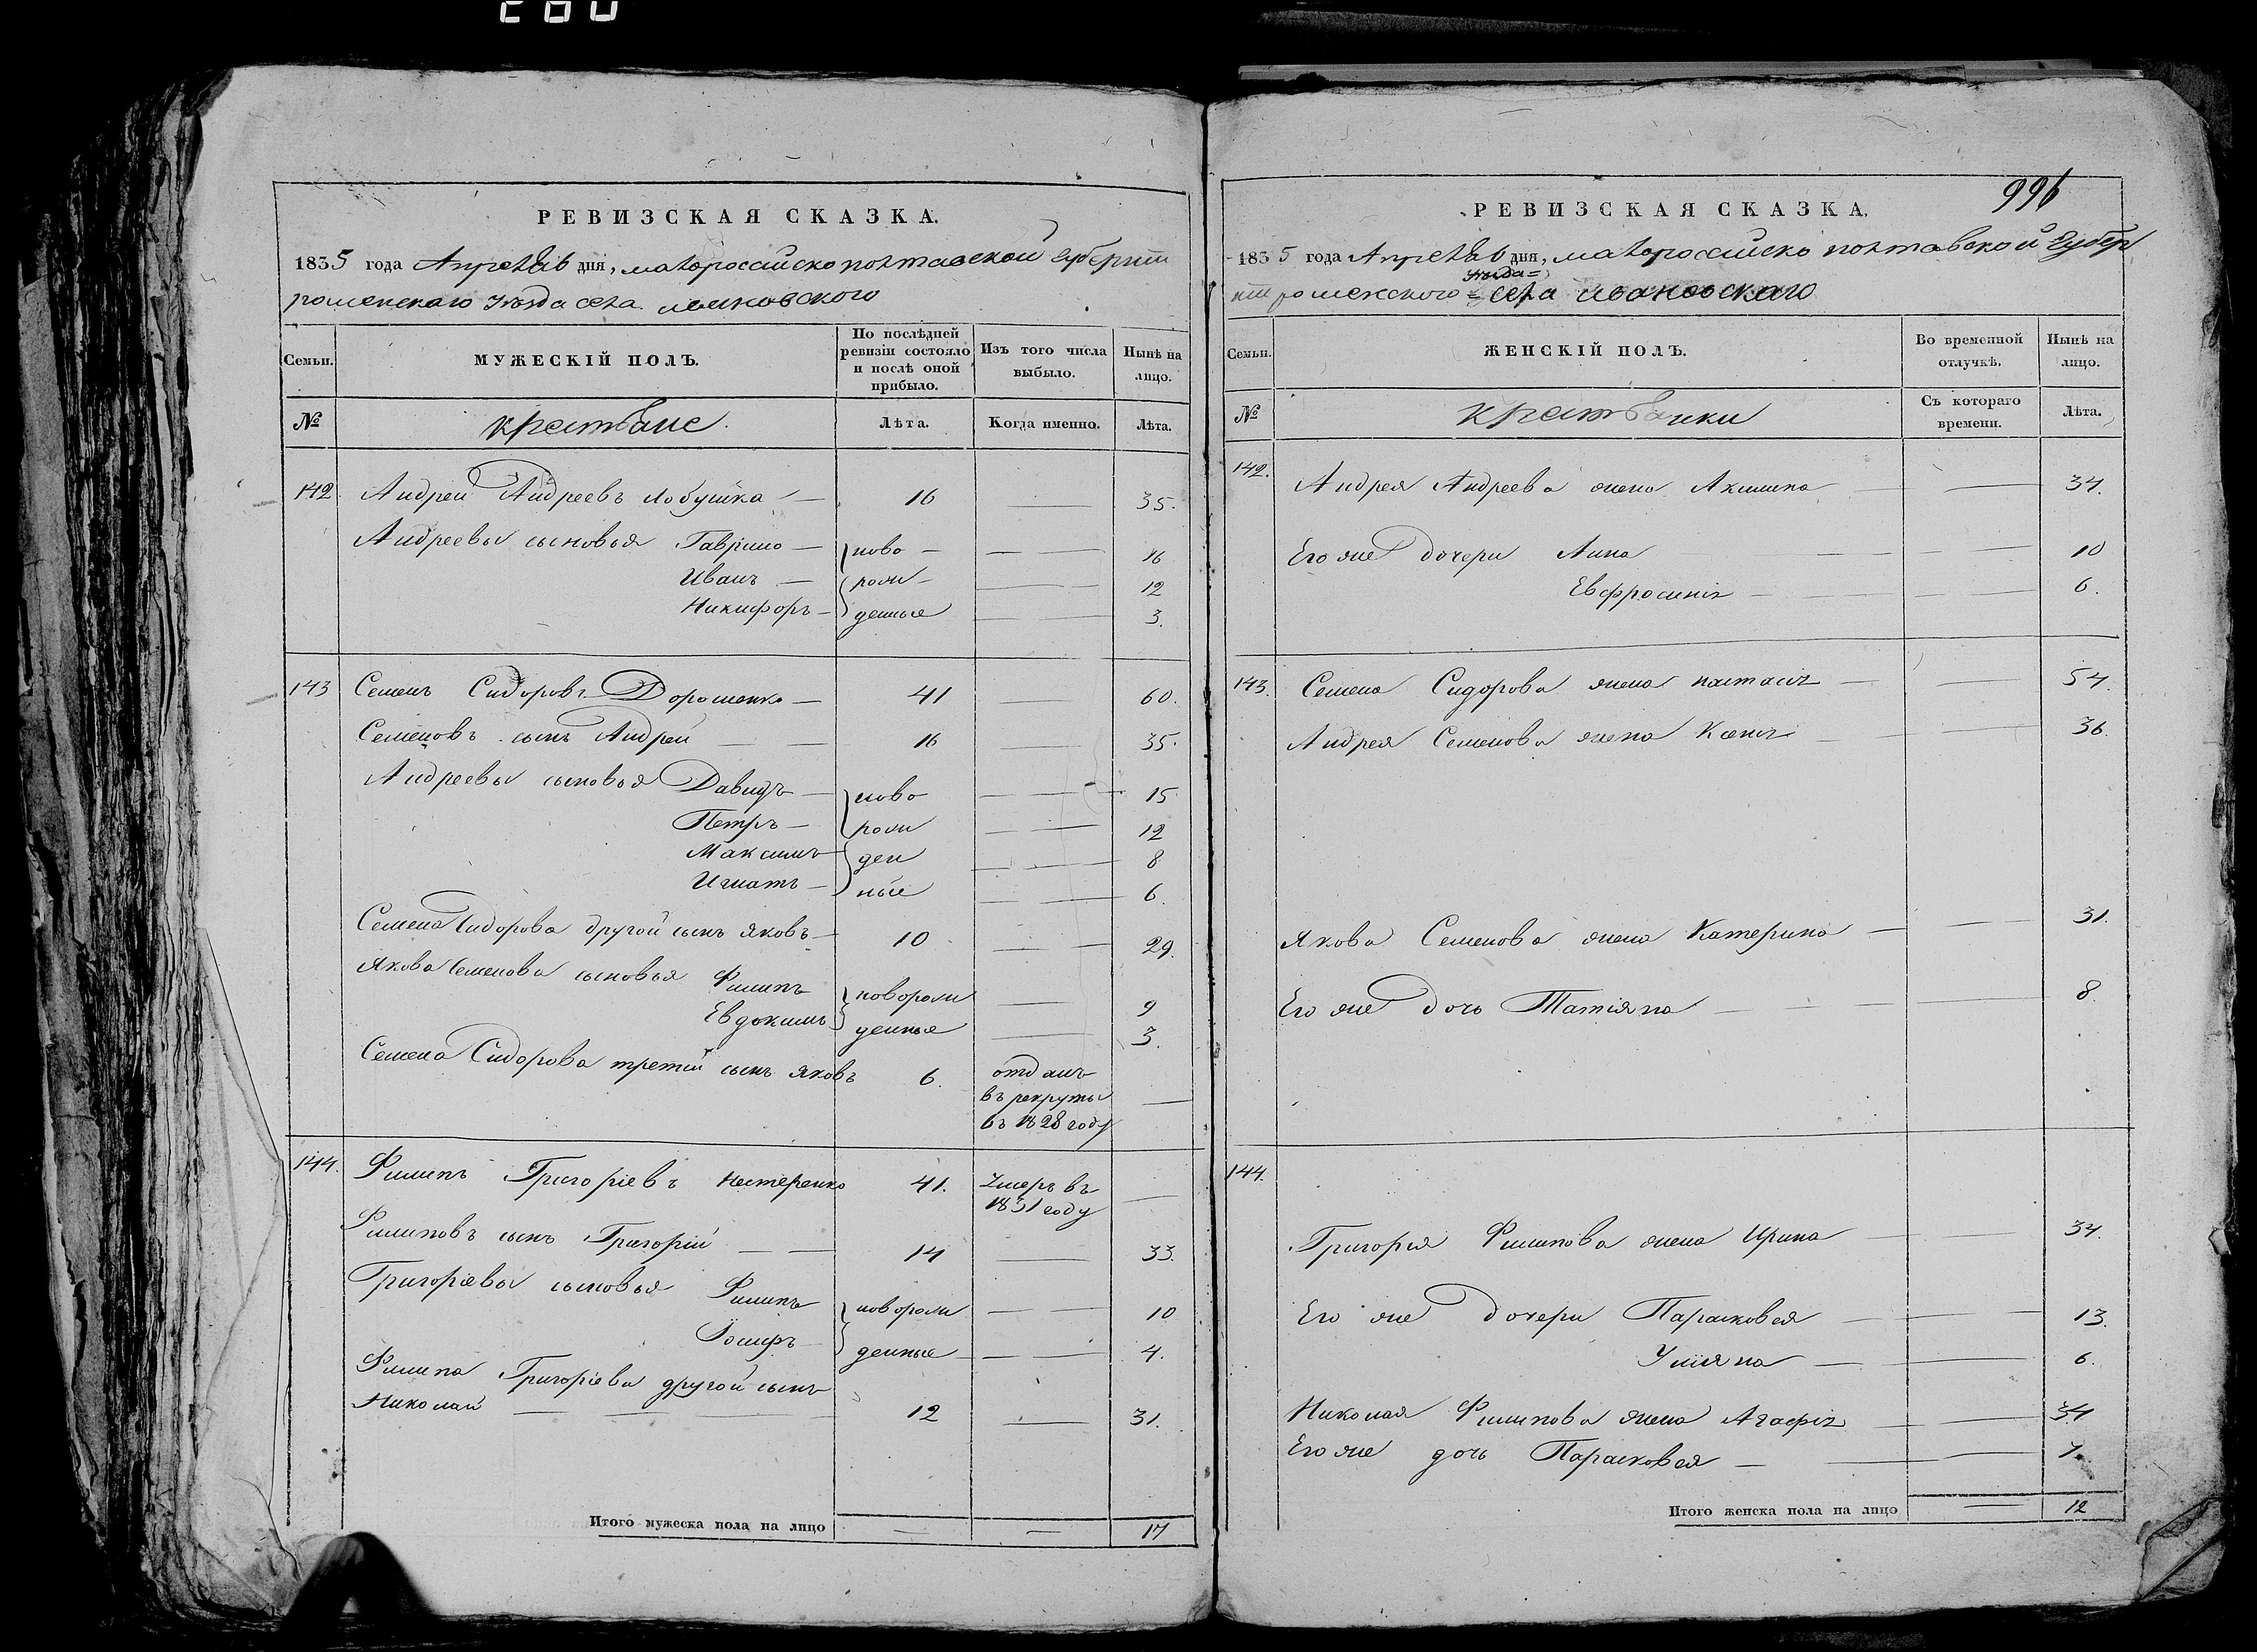 РЕВИЗСКАЯ СКАЗКА.
1835 года Апреля 6 дня, малороссийско полтавской губернии
роменскаго уѣзда села
Семьи.
МУЖЕСКІЙ ПОЛЪ.
По послѣдней ревизіи состояло и послѣ оной прибыло.
Изъ того числа выбыло.
Нынѣ на лицо.
№
крестьяне
Лѣта.
Когда именно.
Лѣта.
142. Андрей Андреевъ Лобушка — 16 — 35.
Андреевы сыновья Гаврило — ново — — 16
Иванъ — рож — — 12
Никифоръ — денные — 3.
143 Семенъ Сидоровъ Дорошенко — 41 — 60.
Семеновъ сынъ Андрей — — 16 35.
Андреевы сыновья Давидъ — ново — — 15
Петръ — рож — — 12
Максимъ — ден — — 8
Игнатъ — ные — — 6.
Семена Сидорова другой сынъ Яковъ — 10 — — 29.
Якова Семенова сыновья Филипъ новорож — 9
Евдокимъ денные — 3.
Семена Сидорова третій сынъ Яковъ 6. отданъ
въ рекруты —
въ 1828 году
144. Филипъ Григоріевъ Нестеренко 41. Умеръ въ —
1831 году
Филиповъ сынъ Григорій — — 14 — 33.
Григоріевы сыновья Филипъ новорож — — 10
Іосифъ денные — — 4.
Филипа Григоріева другой сынъ
Николай — — — 12 — 31.
Итого мужеска пола на лицо — — 17
996
РЕВИЗСКАЯ СКАЗКА.
1835 года Апреля 6 дня, малороссийско полтавской губер
уѣзда
нии роменского села ивановскаго
Семьи.
ЖЕНСКІЙ ПОЛЪ.
Во временной отлучкѣ.
Нынѣ на лицо.
№
крестьянки
Съ котораго времени.
Лѣта.
142. Андрея Андреева жена Акилина — 34.
Его же дочери Анна — — — 10
Евфросинія — — — 6.
143. Семена Сидорова жена настасія — — 54.
Андрея Семенова жена Ксенія — — 36.
Якова Семенова жена Катерина — — 31.
Его же дочь Татіяна — — — 8.
144.
Григорія Филипова жена Ирина — 34.
Его же дочери Парасковея — — 13.
Уліяна — — 6.
Николая Филипова жена Агафія — — 34
Его же дочь Парасковея — —
Итого женска пола на лицо — 12